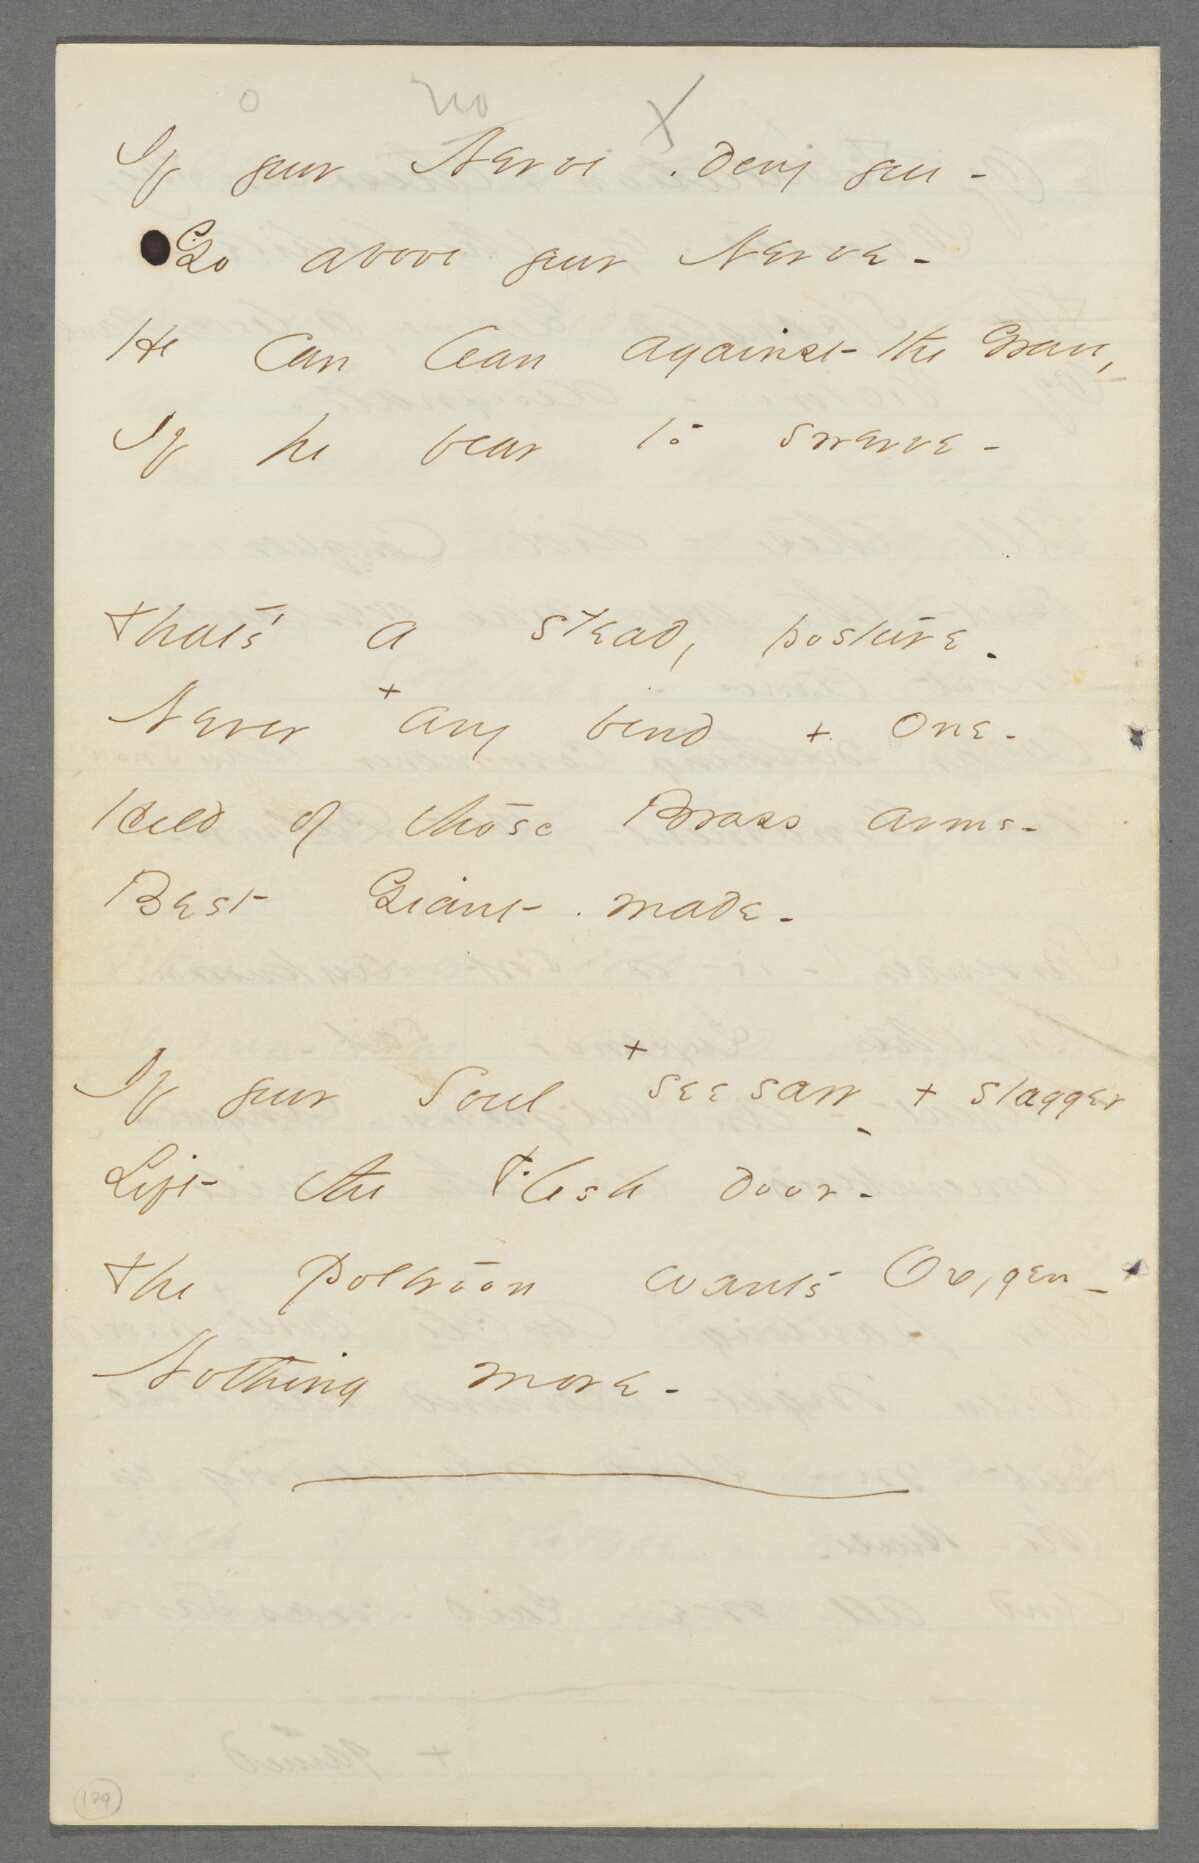 no X
If your Nerve . deny you -
Go above your Nerve -
He can lean against the Grave,
If he fear to swerve -
That's a steady posture -
Never + any bend + One -
Held of those Brass arms -
Best Giant made -
If your Soul + seesaw - + stagger
Lift the Flesh door -
The Poltroon wants Oxygen -
Nothing more -
129